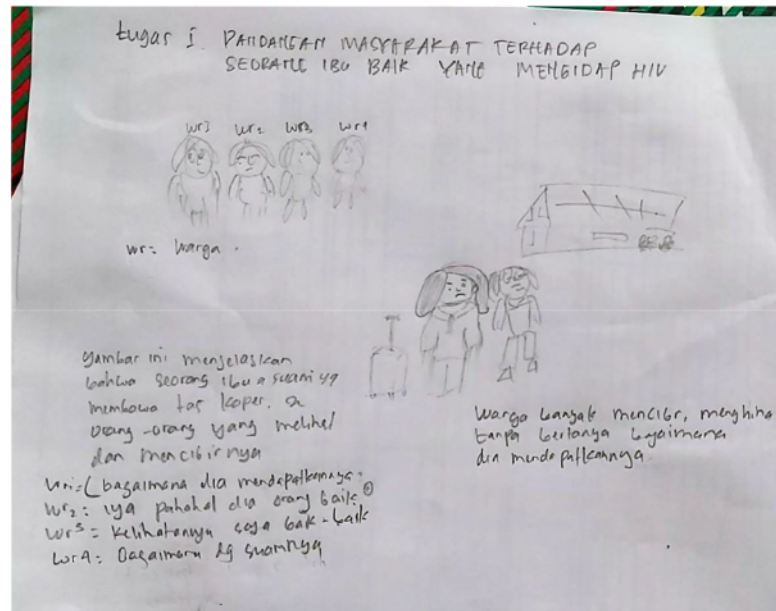 tugas I. PANDANGAN MASYARAKAT TERHADAP
SEORANG IBU BAIK YANG MENGIDAP HIV
wr1 wr2 wr3 wr4
wr = Warga.
gambar ini menjelaskan
bahwa seorang ibu & suami yg
membawa tas koper. &
orang-orang yang melihat
dan mencibirnya
wr1 = ( bagaimana dia mendapatkannya.
wr2 : iya pahahal dia orang baik
wr3 = Kelihatannya saja baik-baik
wr4 : Bagaimana dg suaminya
Warga banyak mencibir, menghina
tanpa bertanya bagaimana
dia mendapatkannya.